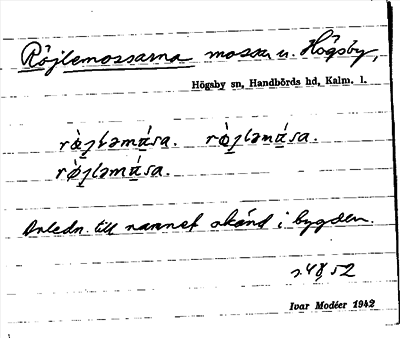 Röjlemossarna mossar n. Högsby,
Högsby sn, Handbörds hd, Kalm. l.
rø̀jləmɑ́sa. rø̀jləmɑ́sa.
rø̀jləmɑ́sa.
Anledn. till namnet okänd i bygden.
s. 48, 52
Ivar Modéer 1942